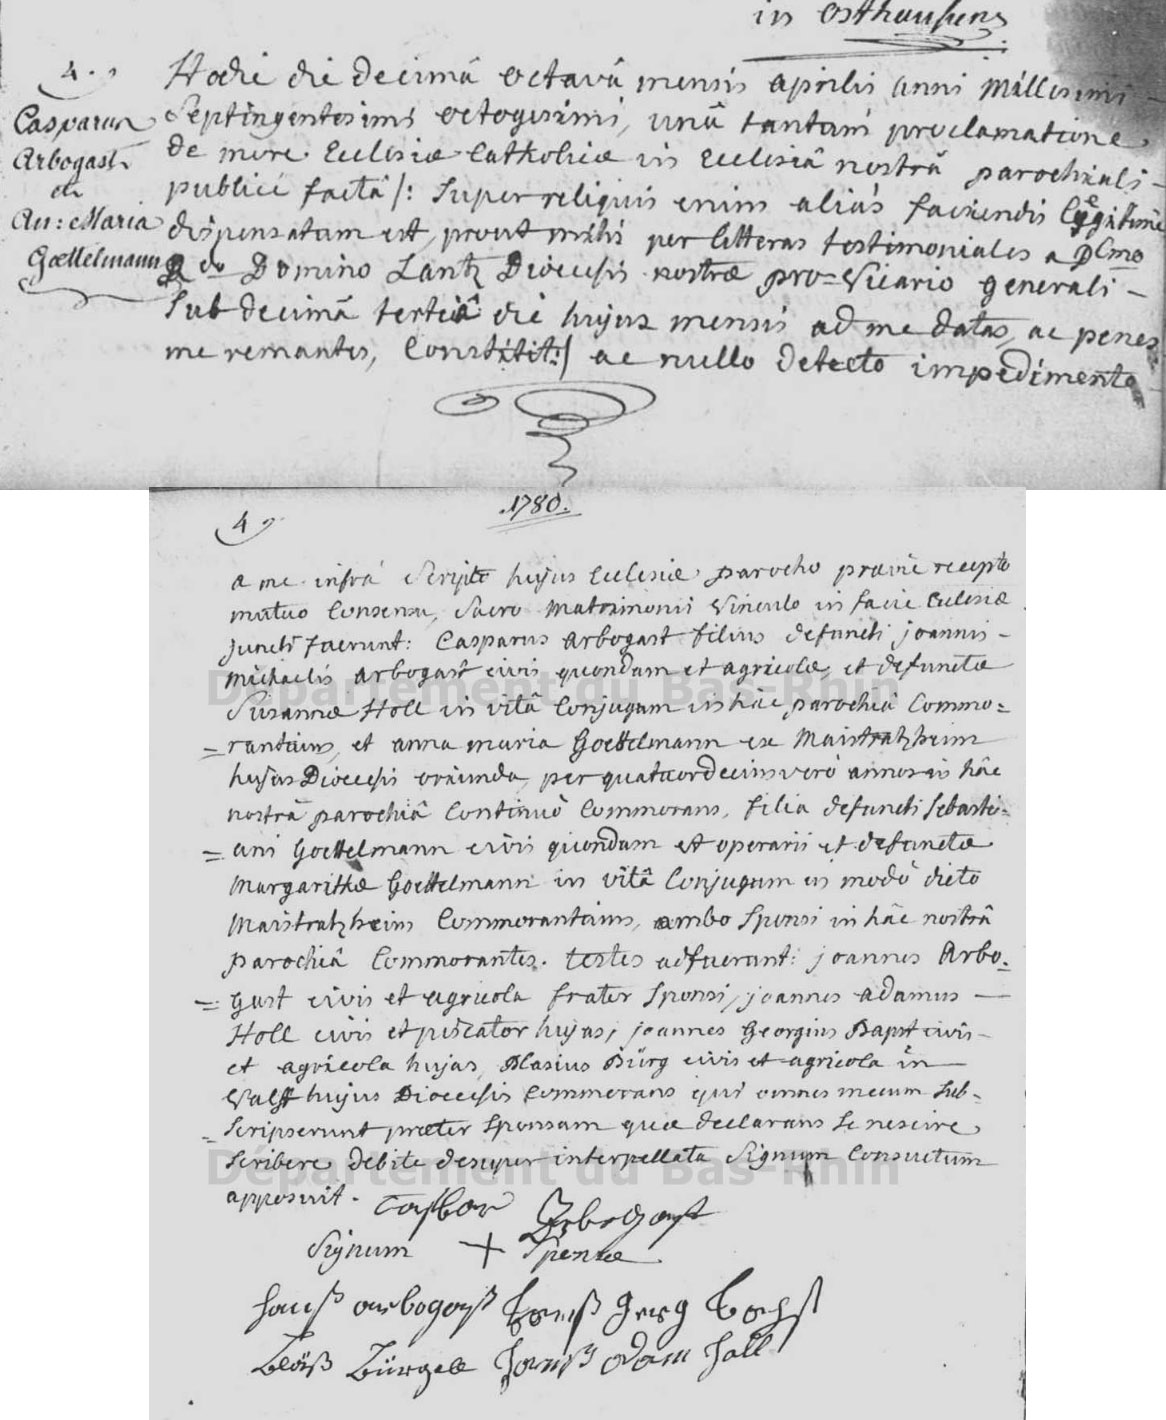 in Osthausen
4.
Casparus
Arbogast
et
An: Maria
Goettelmann
Hodie die decimâ octavâ mensis aprilis anni Millesimi
Septingentesimi octogesimi, unâ tantum proclamatione
de more Ecclesiæ Catholicæ in Ecclesiâ nostrâ parochiali
publicè factâ /: super reliquis enim aliàs faciendis legitimè
dispensatum est, prout mihi per litteras testimoniales a Plmo
R do Domino Lantz Dioecesis nostræ pro-Vicario generali
sub decimâ tertiâ die hujus mensis ad me datas, ac penes
me remantes, Constitit :/ ac nullo detecto impedimento
4
1780.
a me infrà scripto hujus Ecclesiæ parocho prævie recepto
mutuo Consensu, Sacro Matrimonii Vinculo in facie Ecclesiæ
juncti fuerunt: Casparus Arbogast filius defuncti joannis
Michaelis Arbogast civis quondam et agricolæ, et defunctæ
Susannæ Holl in vitâ Conjugum in hâc parochiâ Commo=
=rantium, et anna maria Goettelmann ex Maistratzheim
hujus Dioecesis oriunda, per quatuordecim verò annos in hâc
nostrâ parochiâ Continuò Commorans, filia defuncti Sebasti=
=ani Goettelmann civis quondam et operarii et defunctæ
Margarithæ Goettelmann in vitâ Conjugum in modò dicto
Maistratzheim Commorantium, ambo Sponsi in hâc nostrâ
parochiâ Commorantes. testes adfuerunt: joannes Arbo=
=gast civis et agricola frater Sponsi, joannes adamus
Holl civis et piscator hujas, joannes Georgius Bapst civis
et agricola hujas, Blasius Bürg civis et agricola in
Valff hujus Dioecesis Commorans qui omnes mecum sub=
=scripserunt præter Sponsam quæ declarans se nescire
scribere debite desuper interpellata Signum Consuetum
apposuit. Casber Arbogast
Signum + Sponsæ
hanß arbogast hanß Georg bobst
Bläß Bürgel hanß adam holl
Département du Bas-Rhin
Département du Bas-Rhin